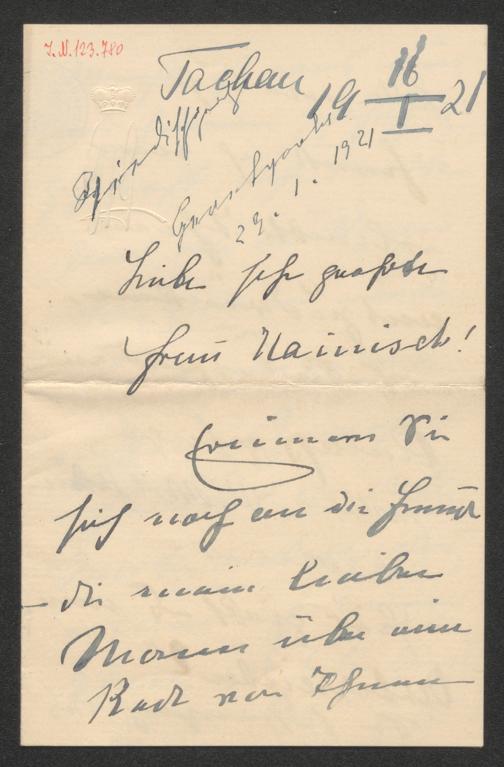 I.N. 123.780
Tachau 19 16/I 21
Geantwortet
29. 1. 1921
Liebe sehr geehrte
Frau Hainisch!
Erinnern Sie
sich noch an die Freude
die mein lieber
Mann über eine
Rede von Ihnen